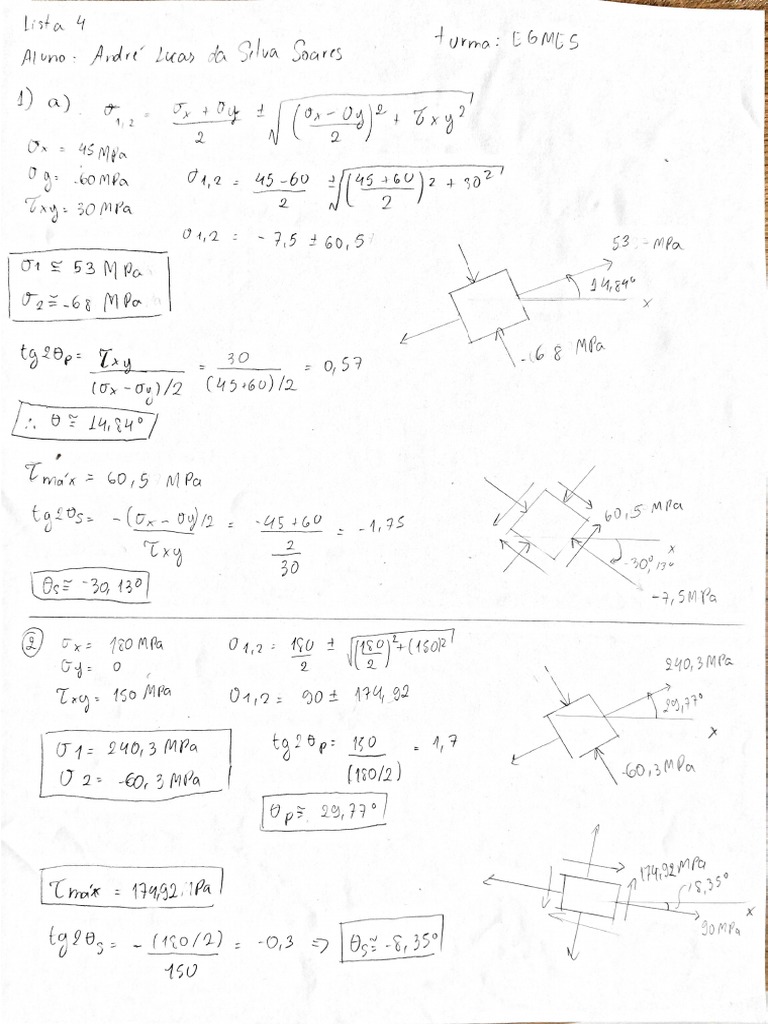 Lista 4
Aluno: André Lucas da Silva Soares
turma: EGMES
1) a) σ1,2 = (σx + σy)/2 ± √(((σx − σy)/2)² + τxy²)
σx = 45 MPa
σy = -60 MPa
τxy = 30 MPa
σ1,2 = (45-60)/2 ± √(((45+60)/2)² + 30²)
σ1,2 = -7,5 ± 60,5
σ1 ≅ 53 MPa
σ2 ≅ -68 MPa
53 MPa
14,84°
x
-68 MPa
tg2θp = τxy/((σx − σy)/2) = 30/((45+60)/2) = 0,57
∴ θ ≅ 14,84°
τmáx = 60,5 MPa
tg2θs = -(σx − σy)/2/τxy = (-45+60)/2/30 = -1,75
θs ≅ -30,13°
60,5 MPa
x
-30,13°
-7,5 MPa
2) σx = 180 MPa
σy = 0
τxy = 150 MPa
σ1,2 = 180/2 ± √((180/2)² + (150)²)
σ1,2 = 90 ± 174,92
σ1 = 240,3 MPa
σ2 = -60,3 MPa
tg2θp = 150/(180/2) = 1,7
θp ≅ 29,77°
240,3 MPa
29,77°
x
-60,3 MPa
τmáx = 174,92 MPa
tg2θs = -(180/2)/150 = -0,3 => θs ≅ -8,35°
174,92 MPa
8,35°
x
90 MPa